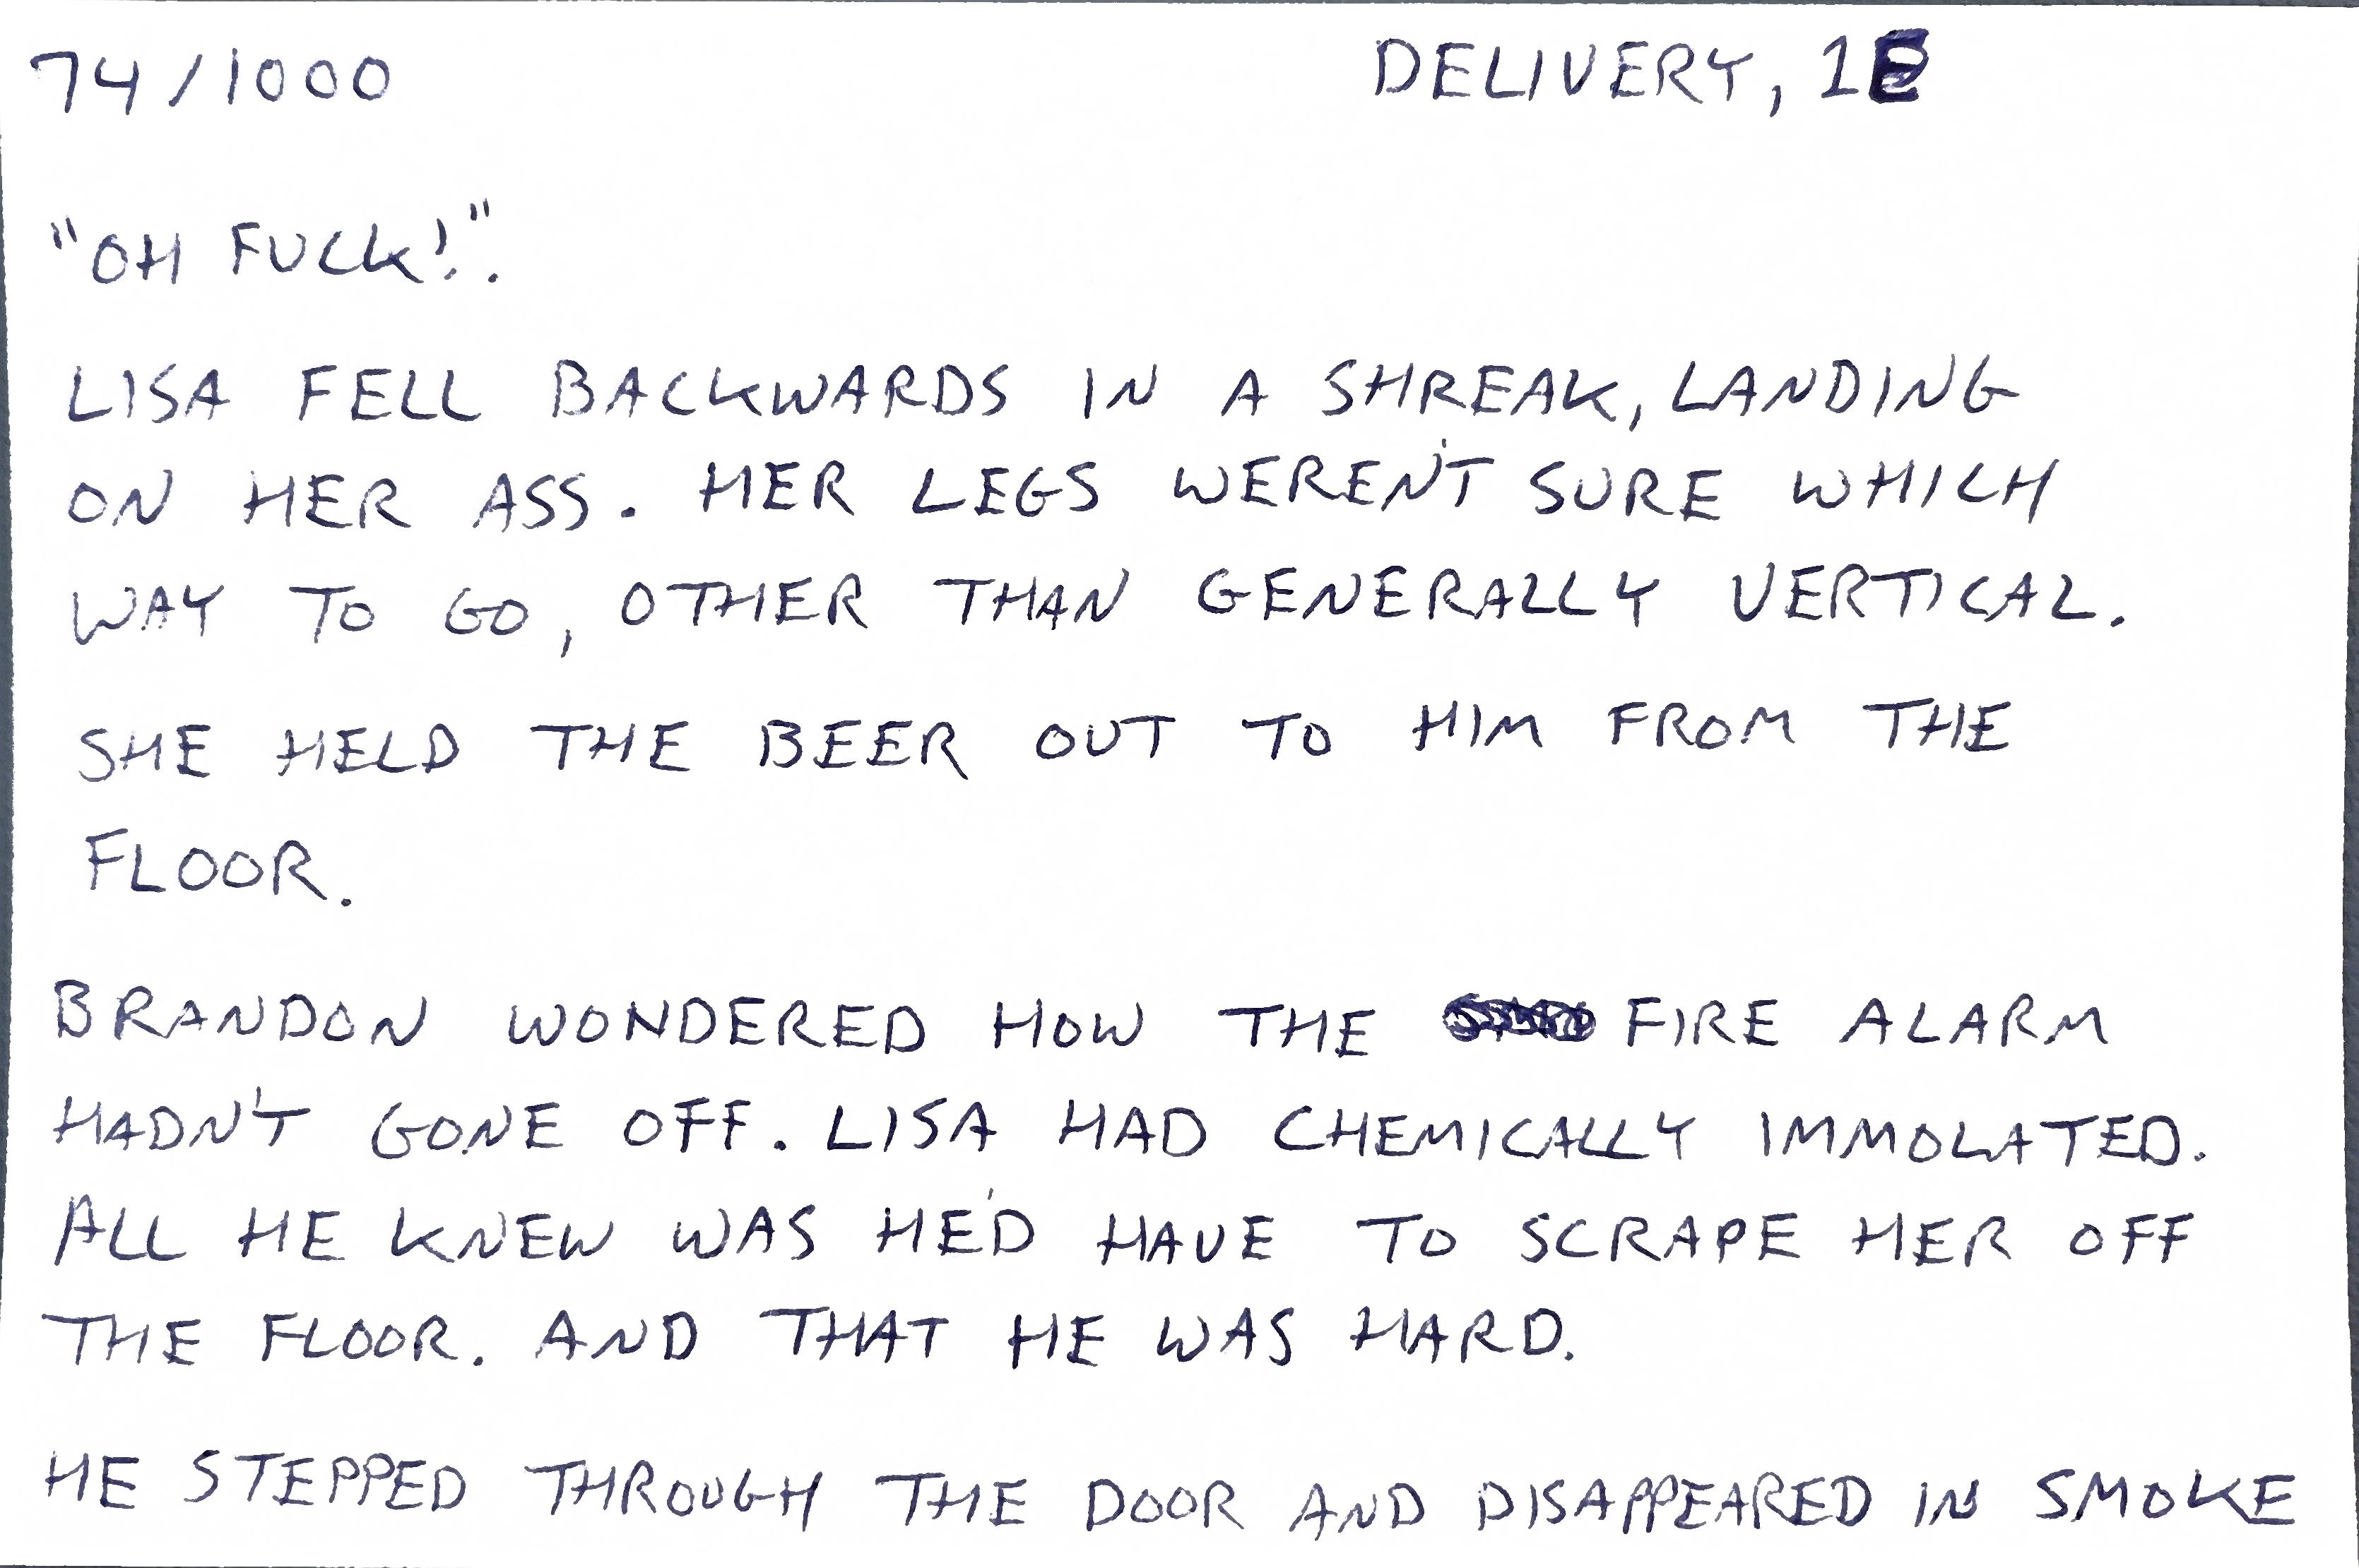 74/1000 DELIVERY, 1E
"OH FUCK!".
LISA FELL BACKWARDS IN A SHREAK, LANDING
ON HER ASS. HER LEGS WEREN'T SURE WHICH
WAY TO GO, OTHER THAN GENERALLY VERTICAL.
SHE HELD THE BEER OUT TO HIM FROM THE
FLOOR.
BRANDON WONDERED HOW THE FIRE ALARM
HADN'T GONE OFF. LISA HAD CHEMICALLY IMMOLATED.
ALL HE KNEW WAS HE'D HAVE TO SCRAPE HER OFF
THE FLOOR. AND THAT HE WAS HARD.
HE STEPPED THROUGH THE DOOR AND DISAPPEARED IN SMOKE